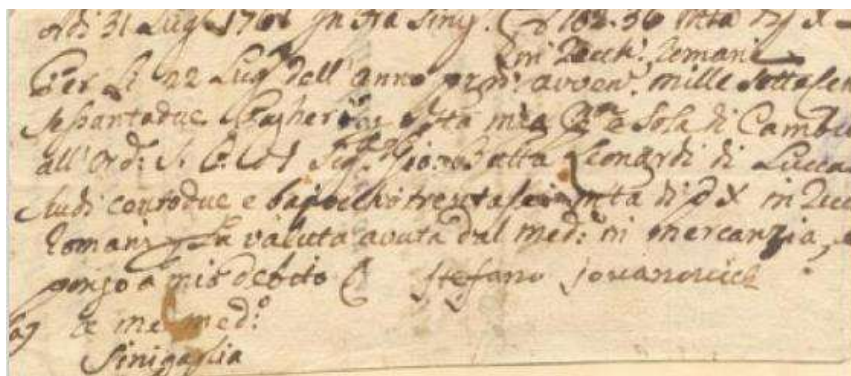 di 31 Lugl. 1761 In fra Sinig. 102:36 mta di p X
in Zecch. Romani
Per li 22 Lug. dell'anno pros. avven. mille settecen
sessantadue Pagherò q.ta mia P.a e sola di Cambio
all'Ord. S. P. del Sig. Gio. Batta Leonardi di Lucca
scudi centodue e bajocchi trentasei mta di p X in Zecc
Romani La valuta avuta dal med. in mercanzia, e
pongo a mio debito Stefano Jovanovich
a me med.o
Sinigaglia